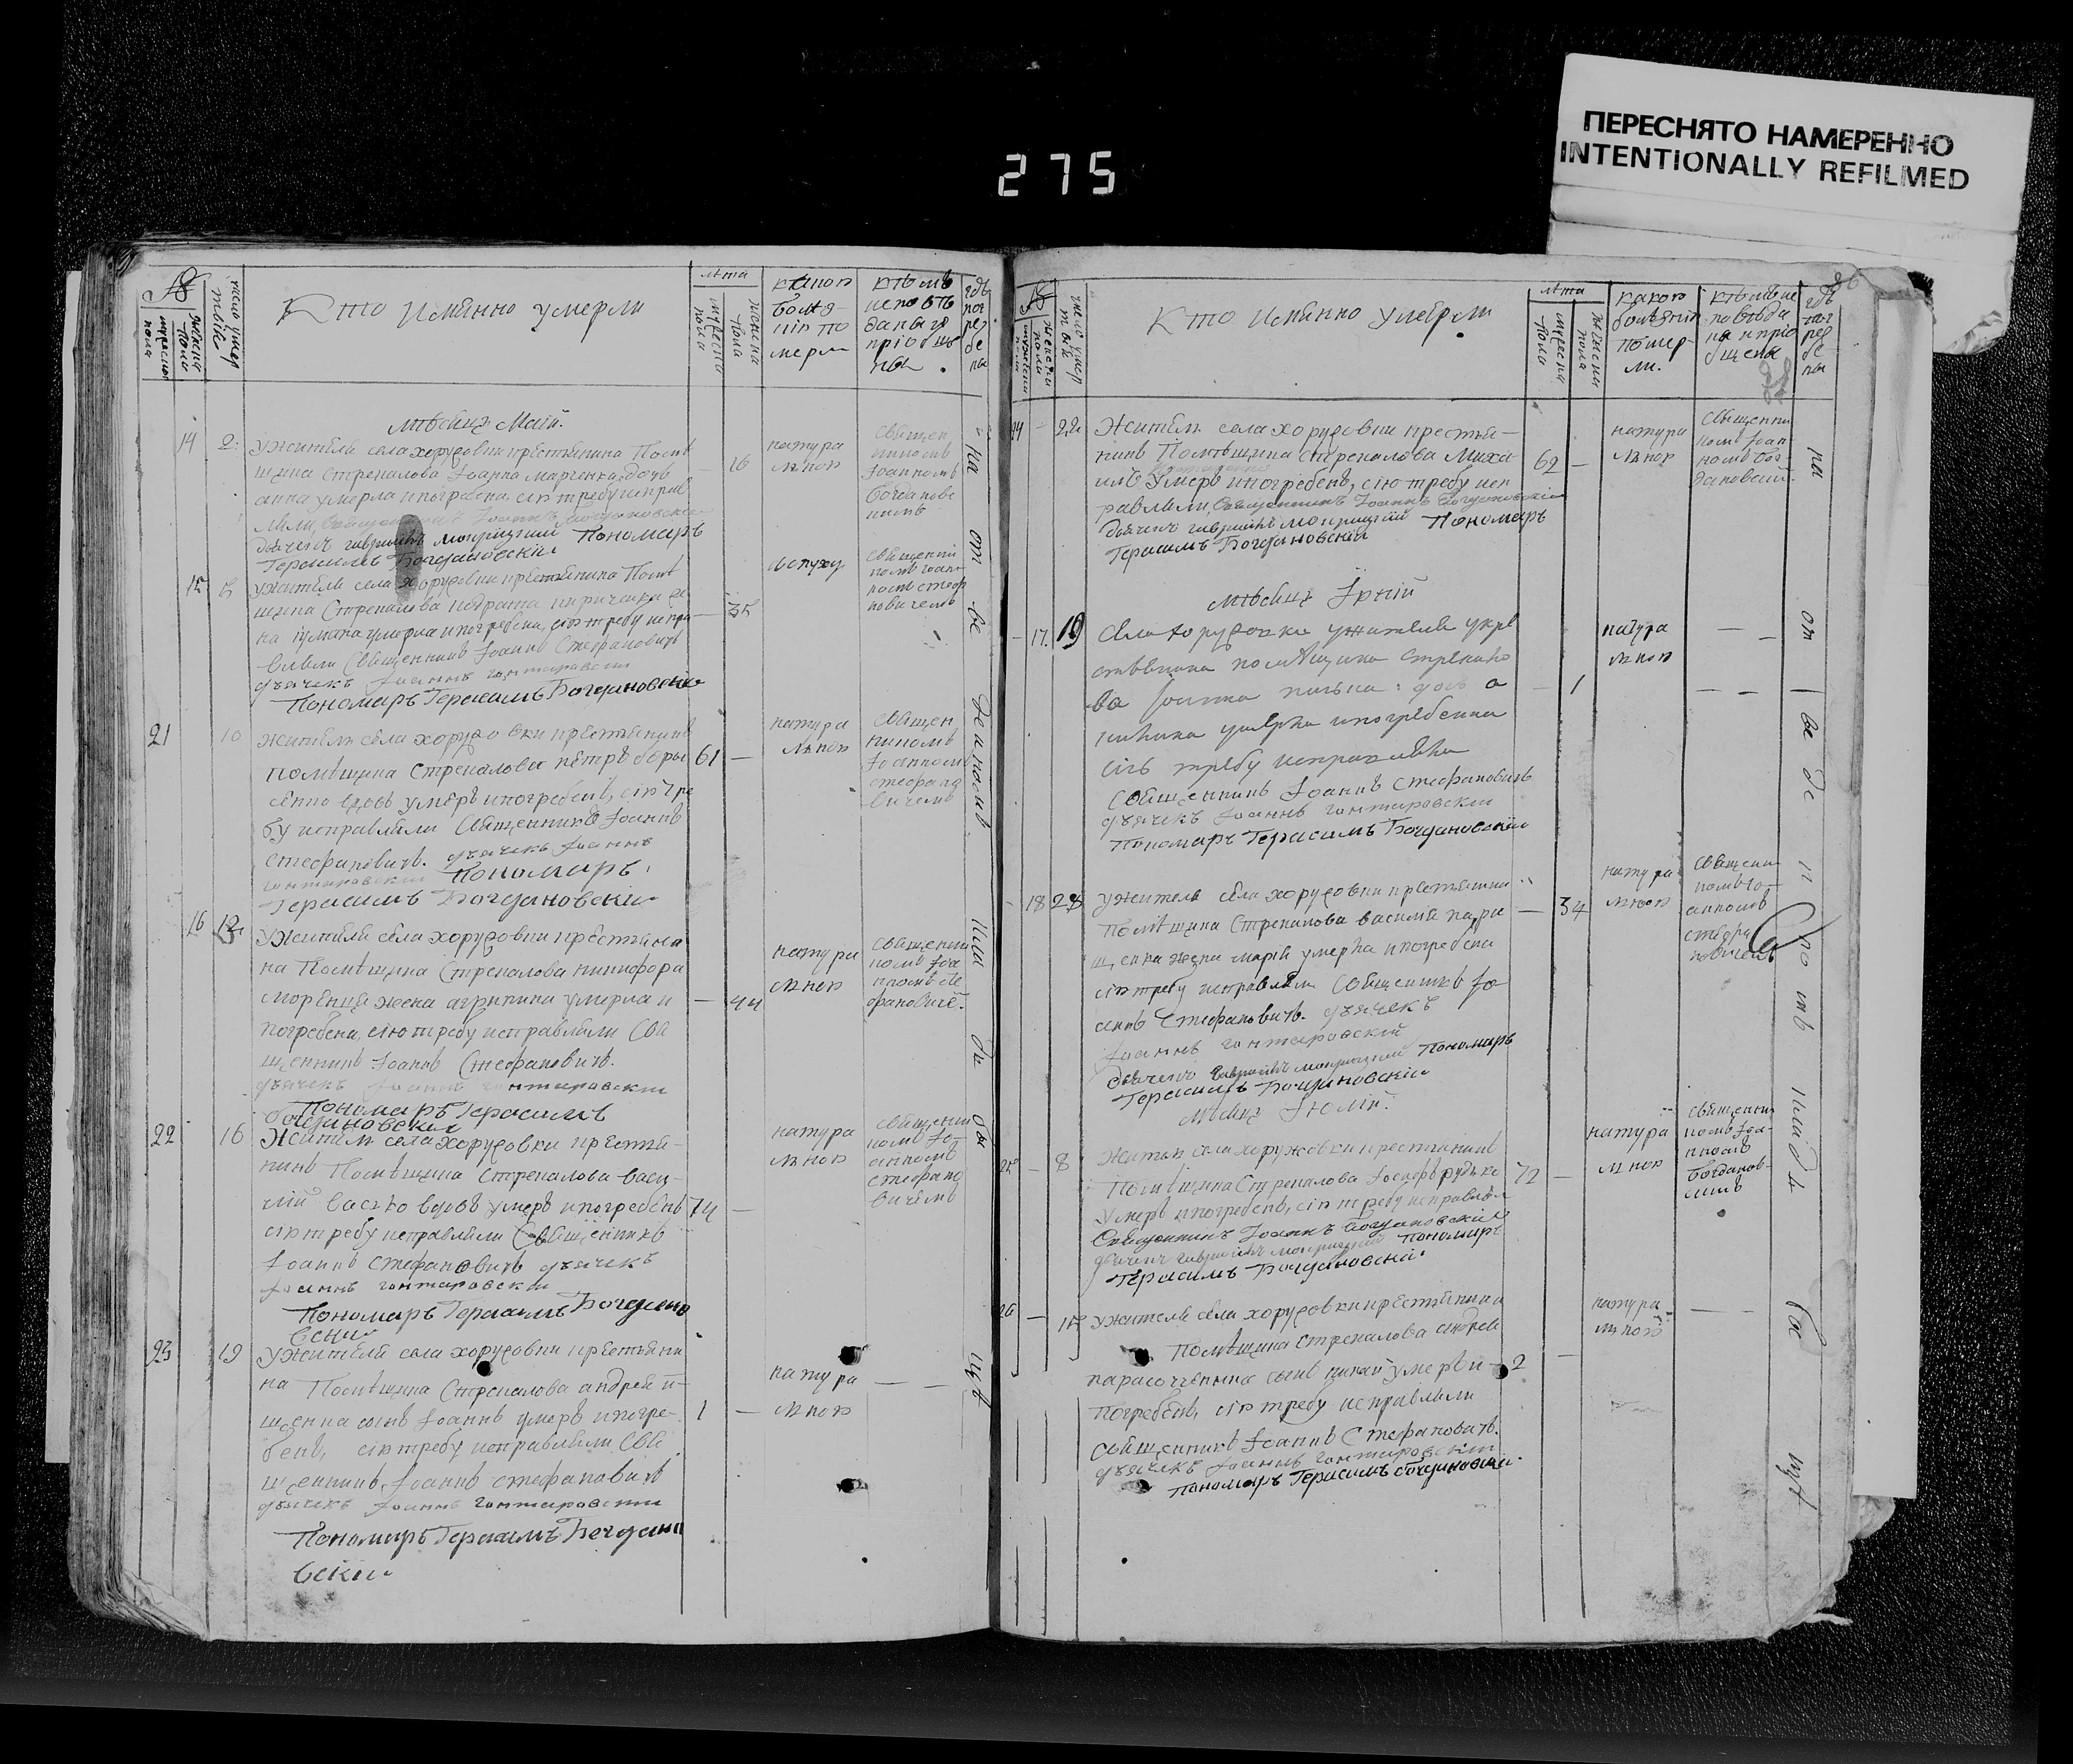 275
ПЕРЕСНЯТО НАМЕРЕННО
INTENTIONALLY REFILMED
№
мужеска пола
женска пола
число умертвіе
Кто Именно умерли
лѣта
мужеска пола
женска пола
какою
болѣз
нію по
мерли
кѣмъ
исповѣ
даны и
пріобще
ны.
гдѣ
пог
ре
бе
ны
мѣсяцъ Маій.
14 2 Ужителя села хоружовки крестьянина Помѣ
щика Стрекалова Іоанна марченка дочь
анна умерла и погребена, сію требу исправ
ляли, Священникъ Іоаннъ Богдановскій
дьячекъ гавріилъ мокрицкій Пономаръ
Герасимъ Богдановскій
16
натура
льною
Священ
никомъ
Іоанномъ
богданов
скимъ
15 5 ужителя села хоружовки крестьянина Помѣ
щика Стрекалова кириченка же
на умерла и погребена, сію требу испра
вляли Священникъ Іоаннъ Стефановичъ
дъячекъ Іоаннъ гонтаровскій
Пономаръ Герасимъ Богдановскій
35
Священни
комъ іоан
номъ стефа
новичемъ
21 10 житель села хоружовки крестьянинъ
помѣщика Стрекалова пѣтръ боры
сенко вдовъ умѣръ и погребенъ, сію тре
бу исправляли Священникъ Іоаннъ
стефановичъ. дъячекъ Іоаннъ
гонтаровскій Пономаръ
Герасимъ Богдановскій
61 —
натура
льною
Священ
никомъ
Іоанном
стефано
вичемъ
16 12 Ужителя села хоружовки крестьяни
на Помѣщика Стрекалова никифора
жена агрипина умерла и
погребена, сію требу исправляли Свя
щенникъ Іоаннъ Стефановичъ.
дъячекъ Іоаннъ гонтаровскій
Пономаръ Герасимъ
богдановскій
— 44
натура
льною
Священни
комъ Іоа
нномъ Сте
фановиче.
22 16 Житель села хоружовки крестья-
нинъ Помѣщика Стрекалова васи-
лій васько вдовъ умеръ и погребенъ
сію требу исправляли Священникъ
Іоаннъ стефановичъ дъячекъ
Іоаннъ гонтаровскій
Пономаръ Герасимъ Богдано
вскій
74 —
натура
льною
священни
комъ Іо-
анномъ
стефано
вичемъ
23 19 ужителя села хоружовки крестьяни
на Помѣщика Стрекалова андрея
щенка сынъ Іоаннъ умеръ и погре-
бенъ, сію требу исправляли Свя
щенникъ, Іоаннъ стефановичъ
дъячекъ Іоаннъ гонтаровскій
Пономаръ Герасимъ Богдано
вскій
1 —
натура
льною
— —
на отве деномъ кла ди бы щѣ
№
Кто Именно умерли
лѣта
мужеска пола
женска пола
какою
болѣзнію
помер-
ли.
кѣмъ ис
повѣда
ны и пріо
бщены
гдѣ
пог
ре
бе
ны
24 — 22 Житель села хоружовки крестья-
нинъ Помѣщика Стрекалова Миха
илъ умеръ и погребенъ, сію требу исп
равляли, Священникъ Іоаннъ Богдановскій
дьячекъ гавріилъ мокрицкій Пономаръ
Герасимъ Богдановскій
62 —
натура
льною
Священни
комъ Іоан
номъ бог
дановским.
мѣсяцъ Іюній
— 17. 19 села хоружовки ужителя укре
стьянина помѣщика стрекало
ва дочь а
килина умерла и погребенна
сію требу исправляли
Священникъ Іоаннъ Стефановичъ
дъячекъ Іоаннъ гонтаровскій
Пономаръ Герасимъ Богдановскій
— 1
натура
льною
— —
— 18 28 ужителя села хоружовки крестьянина
Помѣщика Стрекалова василія
щенка жена марія умерла и погребена
сію требу исправляли Священникъ Іо-
аннъ Стефановичъ. дъячекъ
Іоаннъ гонтаровскій
дьячекъ гавріилъ мокрицкій Пономаръ
Герасимъ Богдановскій
— 34
натура
льною
Священни
комъ Іо-
анномъ
стефа
новичемъ
Мѣсяцъ Іюлій.
25 — 8 Житель села хоружовки крестьянинъ
Помѣщика Стрекалова Іосифъ рудько
умеръ и погребенъ, сію требу исправляли
Священникъ Іоаннъ Богдановскій
дьячекъ гавріилъ мокрицкій Пономаръ
Герасимъ Богдановскій
72 —
натура
льною
священни
комъ Іоа-
нномъ
богданов-
скимъ
26 — 15 ужителя села хоружовки крестьянина
Помѣщика стрекалова андрея
сынъ умеръ и
погребенъ, сію требу исправляли
священникъ Іоаннъ Стефановичъ.
дъячекъ Іоаннъ гонтаровскій
Пономаръ Герасимъ богдановскій.
2 —
натура
льною
— —
на от ве де н